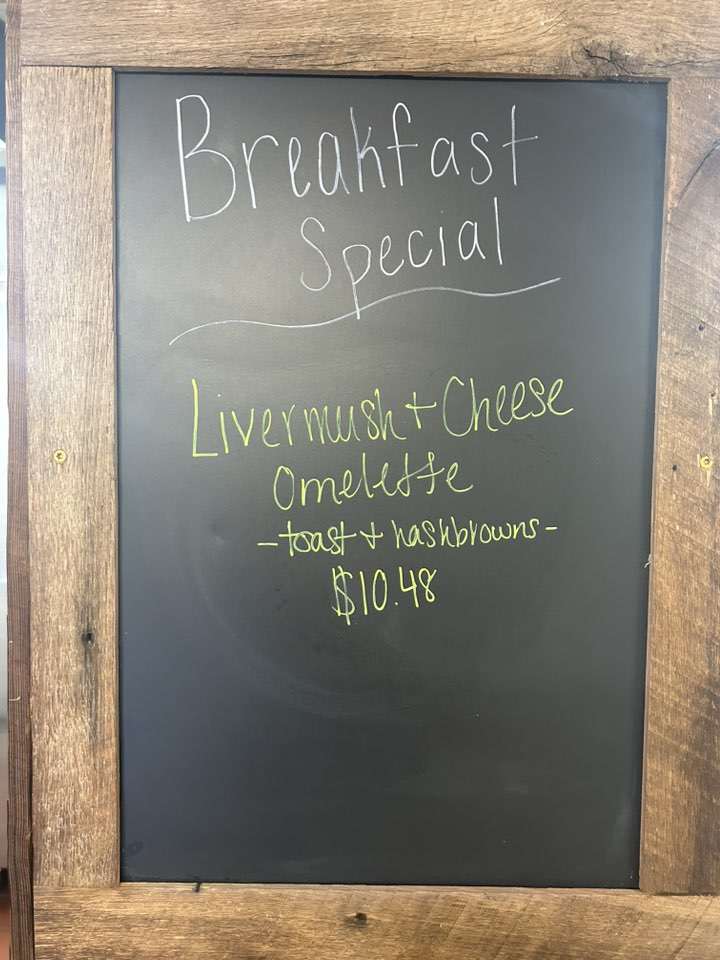 Breakfast
Special
Livermush + Cheese
Omelette
-toast + hashbrowns-
$10.48